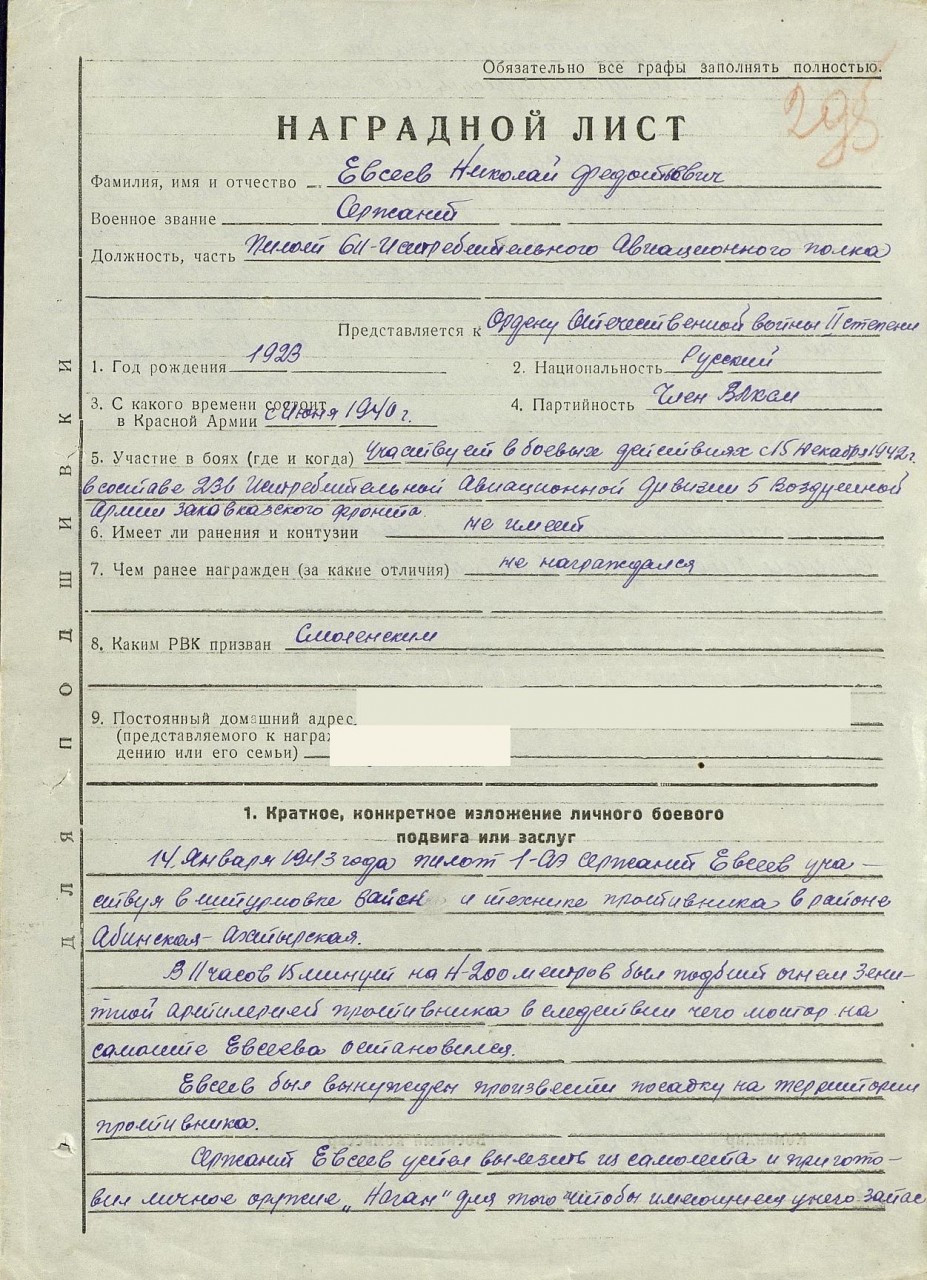 Обязательно все графы заполнять полностью.
НАГРАДНОЙ ЛИСТ
Фамилия, имя и отчество Евсеев Николай Федотович
Военное звание Сержант
Должность, часть Пилот 611-Истребительного Авиационного полка
Представляется к Ордену Отечественной войны II степени
1. Год рождения 1923
2. Национальность Русский
3. С какого времени состоит
в Красной Армии с Июня 1940 г.
4. Партийность Член ВЛКСМ
5. Участие в боях (где и когда) Участвует в боевых действиях с 15 декабря 1942 г.
в составе 236 Истребительной Авиационной Дивизии 5 Воздушной
Армии Закавказского фронта.
6. Имеет ли ранения и контузии не имеет
7. Чем ранее награжден (за какие отличия) не награждался
8. Каким РВК призван Смоленским
9. Постоянный домашний адрес
(представляемого к награ
дению или его семьи)
1. Краткое, конкретное изложение личного боевого
подвига или заслуг
14 Января 1943 года пилот 1-АЭ сержант Евсеев уча-
ствуя в штурмовке войск и технике противника в районе
Абинская-Ахтырская.
В 11 часов 15 минут на Н-200 метров был подбит огнем зени-
тной артилерией противника в следствии чего мотор на
самолёте Евсеева остановился.
Евсеев был вынужден произвести посадку на территории
противника.
Сержант Евсеев успел вылезить из самолета и пригото-
вил личное оружие „Наган" для того чтобы имеющиеся у него запас
ДЛЯ ПОДШИВКИ